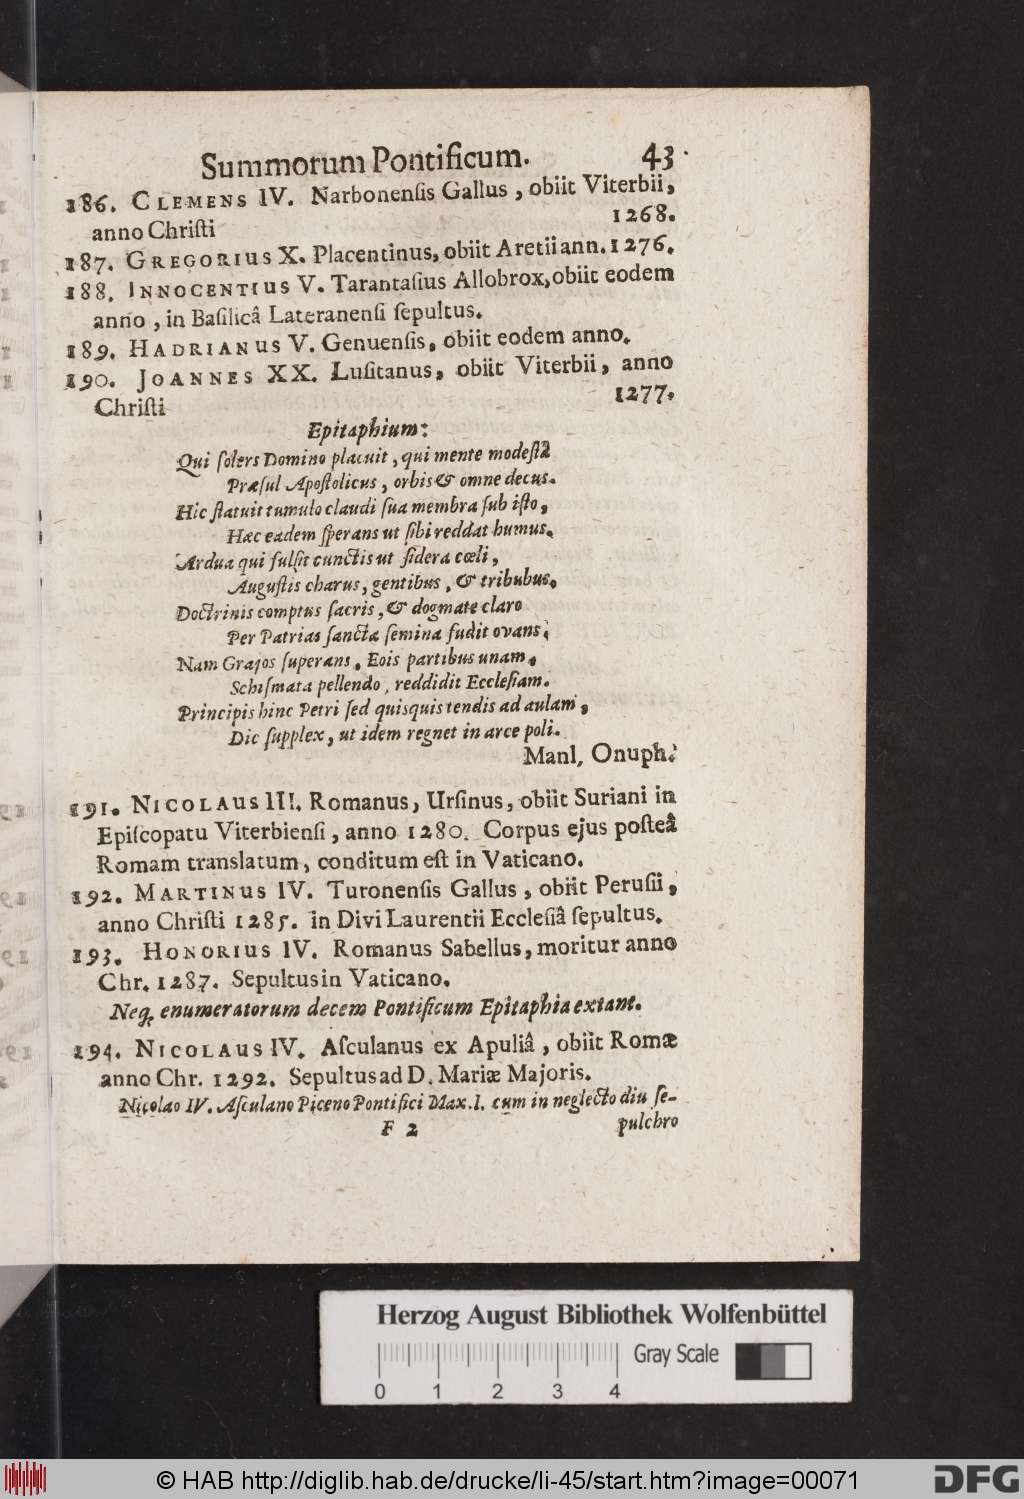 Summorum Pontificum. 43
186. CLEMENS IV. Narbonensis Gallus, obiit Viterbii,
anno Christi 1268.
187. GREGORIUS X. Placentinus, obiit Aretii ann. 1276.
188. INNOCENTIUS V. Tarantasius Allobrox, obiit eodem
anno, in Basilicâ Lateranensi sepultus.
189. HADRIANUS V. Genuensis, obiit eodem anno.
190. JOANNES XX. Lusitanus, obiit Viterbii, anno
Christi 1277.
Epitaphium:
Qui solers Domino placuit, qui mente modestâ
Præsul Apostolicus, orbis & omne decus.
Hic statuit tumulo claudi sua membra sub isto,
Hæc eadem sperans ut sibi reddat humus.
Ardua qui fulsit cunctis ut sidera cœli,
Augustis charus, gentibus, & tribubus.
Doctrinis comptus sacris, & dogmate claro
Per Patrias sancta semina fudit ovans;
Nam Grajos superans, Eois partibus unam,
Schismata pellendo, reddidit Ecclesiam.
Principis hinc Petri sed quisquis tendis ad aulam,
Dic supplex, ut idem regnet in arce poli.
Manl, Onuph.
191. NICOLAUS III. Romanus, Ursinus, obiit Suriani in
Episcopatu Viterbiensi, anno 1280. Corpus ejus posteâ
Romam translatum, conditum est in Vaticano.
192. MARTINUS IV. Turonensis Gallus, obiit Perusii,
anno Christi 1285. in Divi Laurentii Ecclesiâ sepultus.
193. HONORIUS IV. Romanus Sabellus, moritur anno
Chr. 1287. Sepultus in Vaticano.
Neq; enumeratorum decem Pontificum Epitaphia extant.
194. NICOLAUS IV. Asculanus ex Apuliâ, obiit Romæ
anno Chr. 1292. Sepultus ad D. Mariæ Majoris.
Nicolao IV. Asculano Piceno Pontifici Max. I. cum in neglecto diu se-
F 2 pulchro
Herzog August Bibliothek Wolfenbüttel
Gray Scale
0 1 2 3 4
© HAB http://diglib.hab.de/drucke/li-45/start.htm?image=00071
DFG